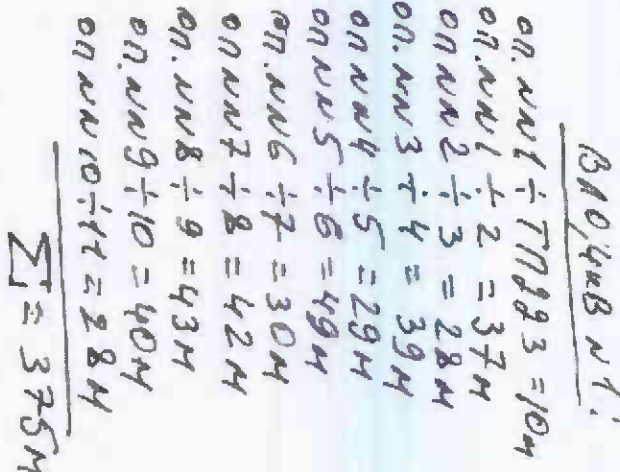 ВЛ 0,4 кВ №1:
оп. №№1÷ТП223 = 10м
оп. №№1÷2 = 37м
оп №№2÷3 = 28м
оп. №№3÷4 = 39м
оп №№4÷5 = 29м
оп №№5÷6 = 49м
оп. №№6÷7 = 30м
оп №№7÷8 = 42м
оп. №№8÷9 = 43м
оп. №№9÷10 = 40м
оп №№10÷11 = 28м
Σ = 375м